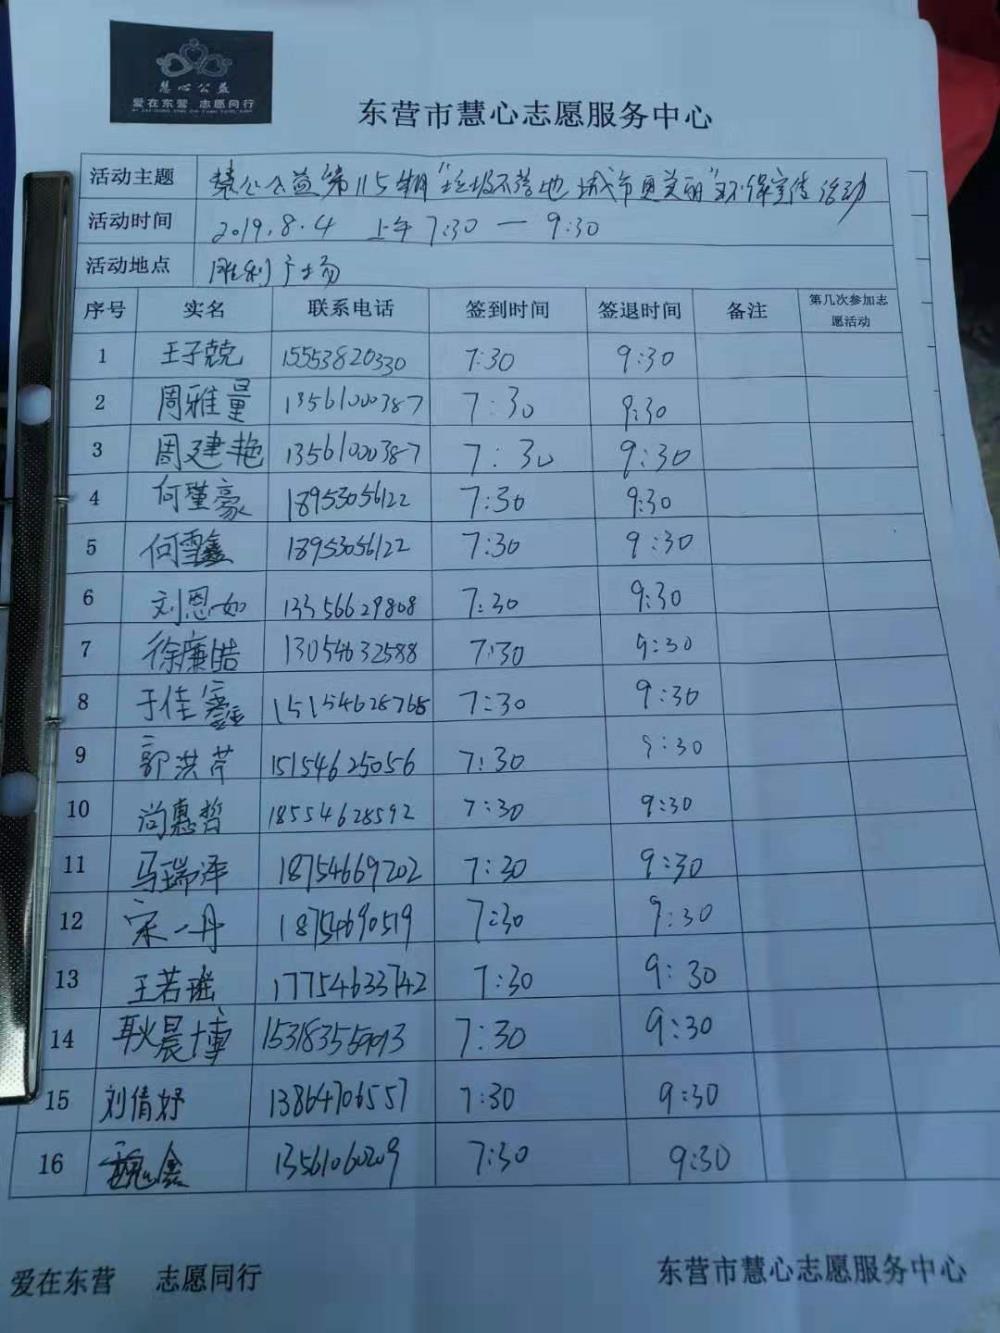 慧心公益
爱在东营 志愿同行
东营市慧心志愿服务中心
活动主题 慧心公益第115期"垃圾不落地 城市更美丽"环保宣传活动
活动时间 2019.8.4 上午 7:30 — 9:30
活动地点 胜利广场
序号 实名 联系电话 签到时间 签退时间 备注 第几次参加志愿活动
1 王子兢 15553820330 7:30 9:30
2 周雅量 13561000387 7:30 9:30
3 周建艳 13561000387 7:30 9:30
4 何瑾豪 18953056122 7:30 9:30
5 何雪鑫 18953056122 7:30 9:30
6 刘恩如 13356629808 7:30 9:30
7 徐廉皓 13054632588 7:30 9:30
8 于佳鑫 15154628768 7:30 9:30
9 郭洪芹 15154625056 7:30 9:30
10 尚惠哲 18554628592 7:30 9:30
11 马瑞泽 18754669202 7:30 9:30
12 宋一丹 18754690519 7:30 9:30
13 王若瑶 17754633742 7:30 9:30
14 耿晨博 7:30 9:30
15 刘倩妤 13864706557 7:30 9:30
16 魏鑫 13561060209 7:30 9:30
爱在东营 志愿同行 东营市慧心志愿服务中心